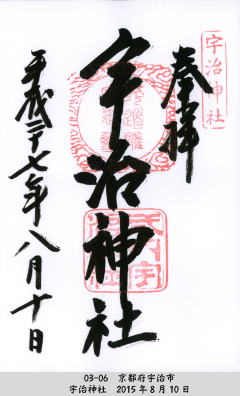 宇治神社
奉拝
宇治神社
平成二十七年八月十日
03-06 京都府宇治市
宇治神社 2015年8月10日